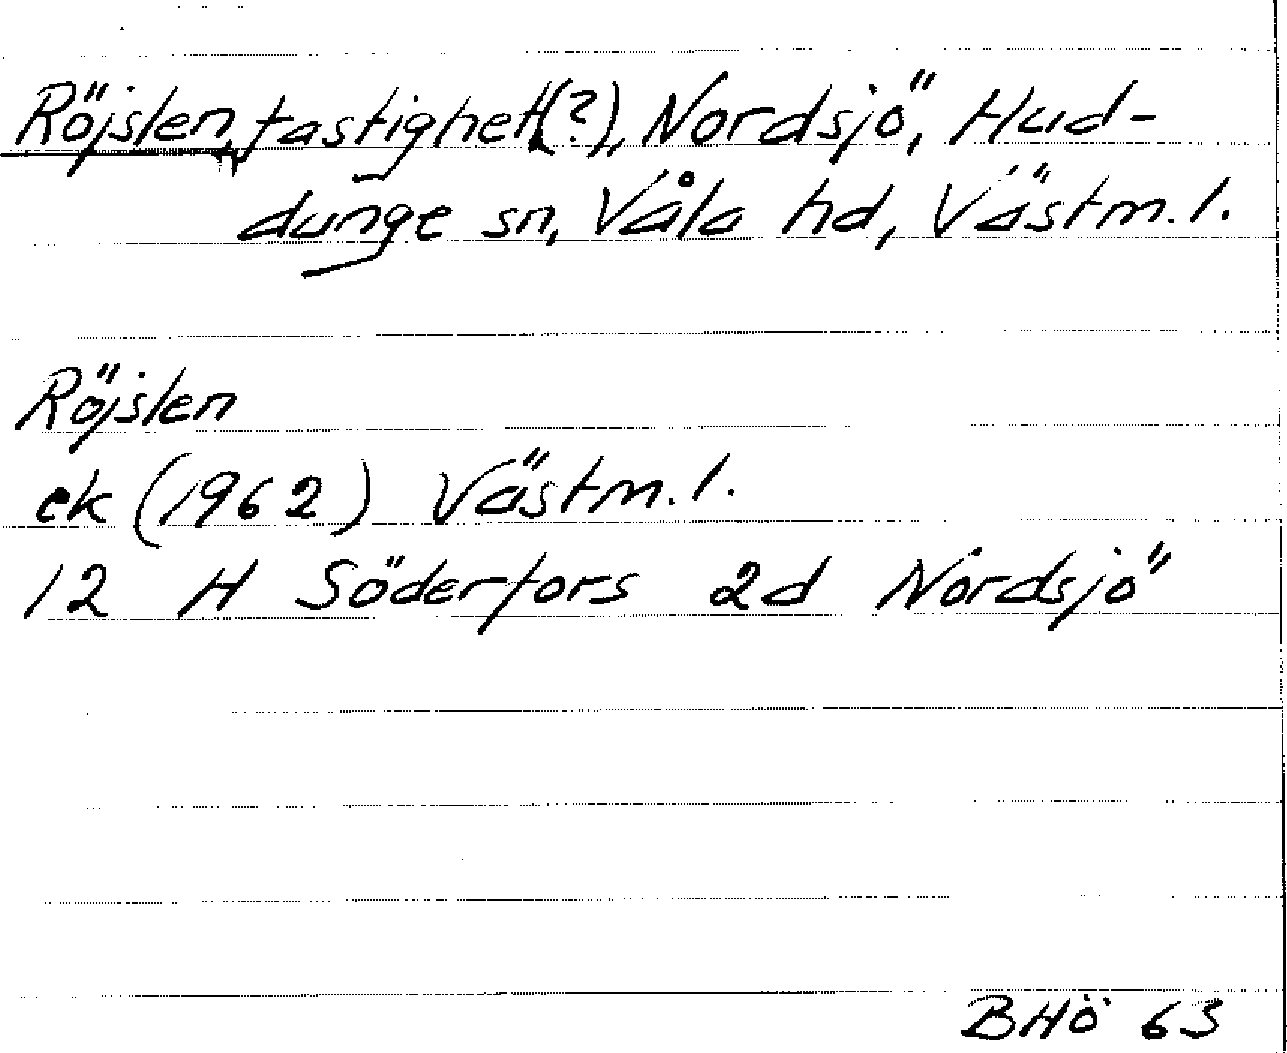 Röjslen, fastighet(?), Nordsjö, Hud-
dunge sn, Våla hd, Västm. l.
Röjslen
ek (1962) Västm. l.
12 H Söderfors 2d Nordsjö
BHÖ 63